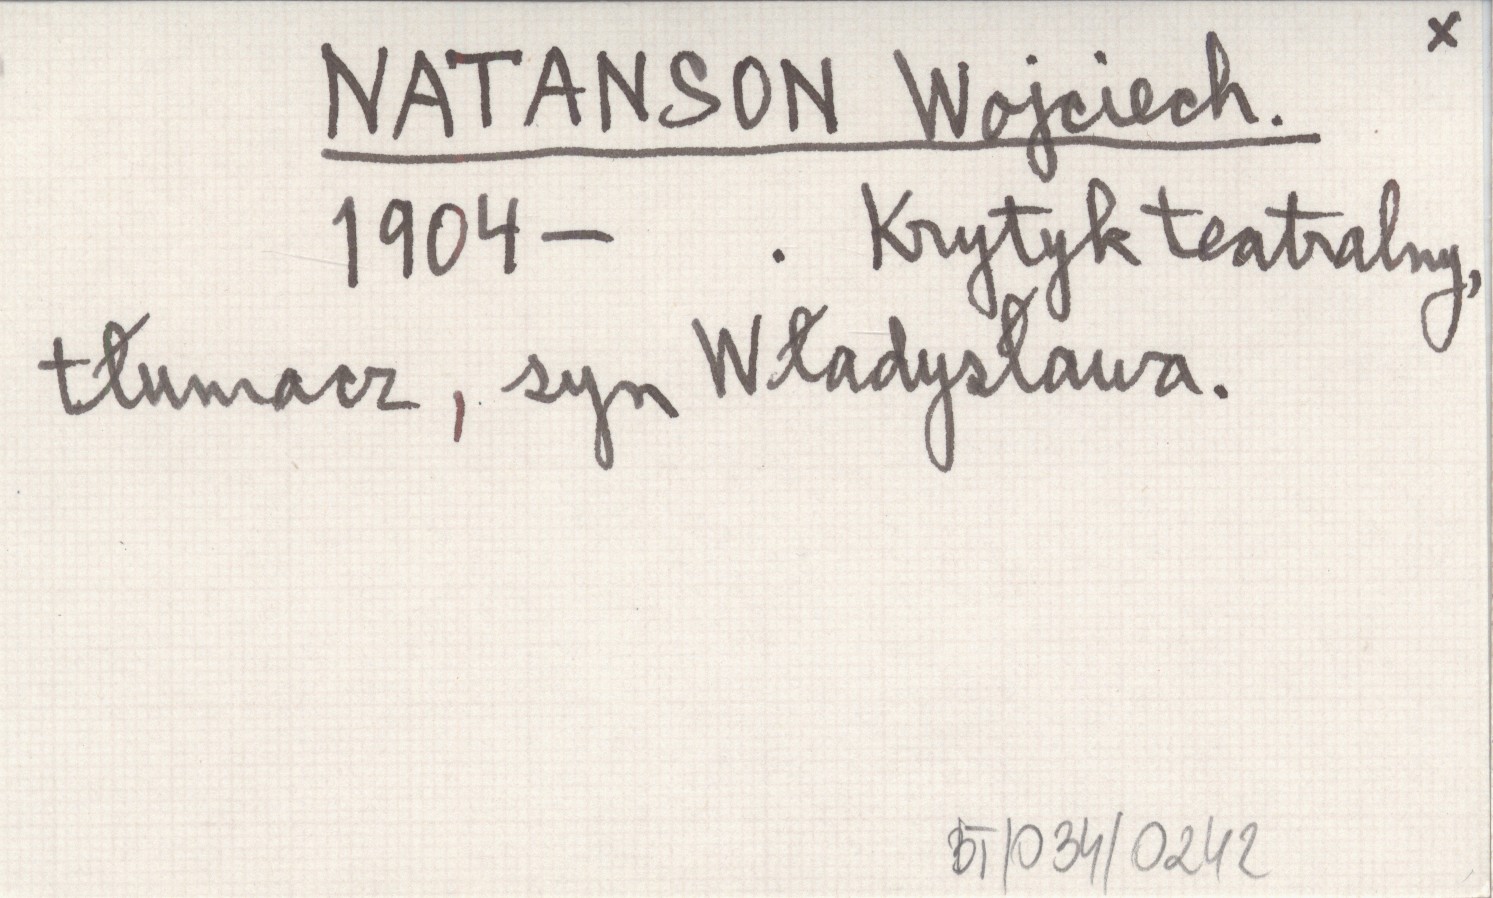 x
NATANSON Wojciech.
1904 — . Krytyk teatralny,
tłumacz, syn Władysława.
BT/034/0242